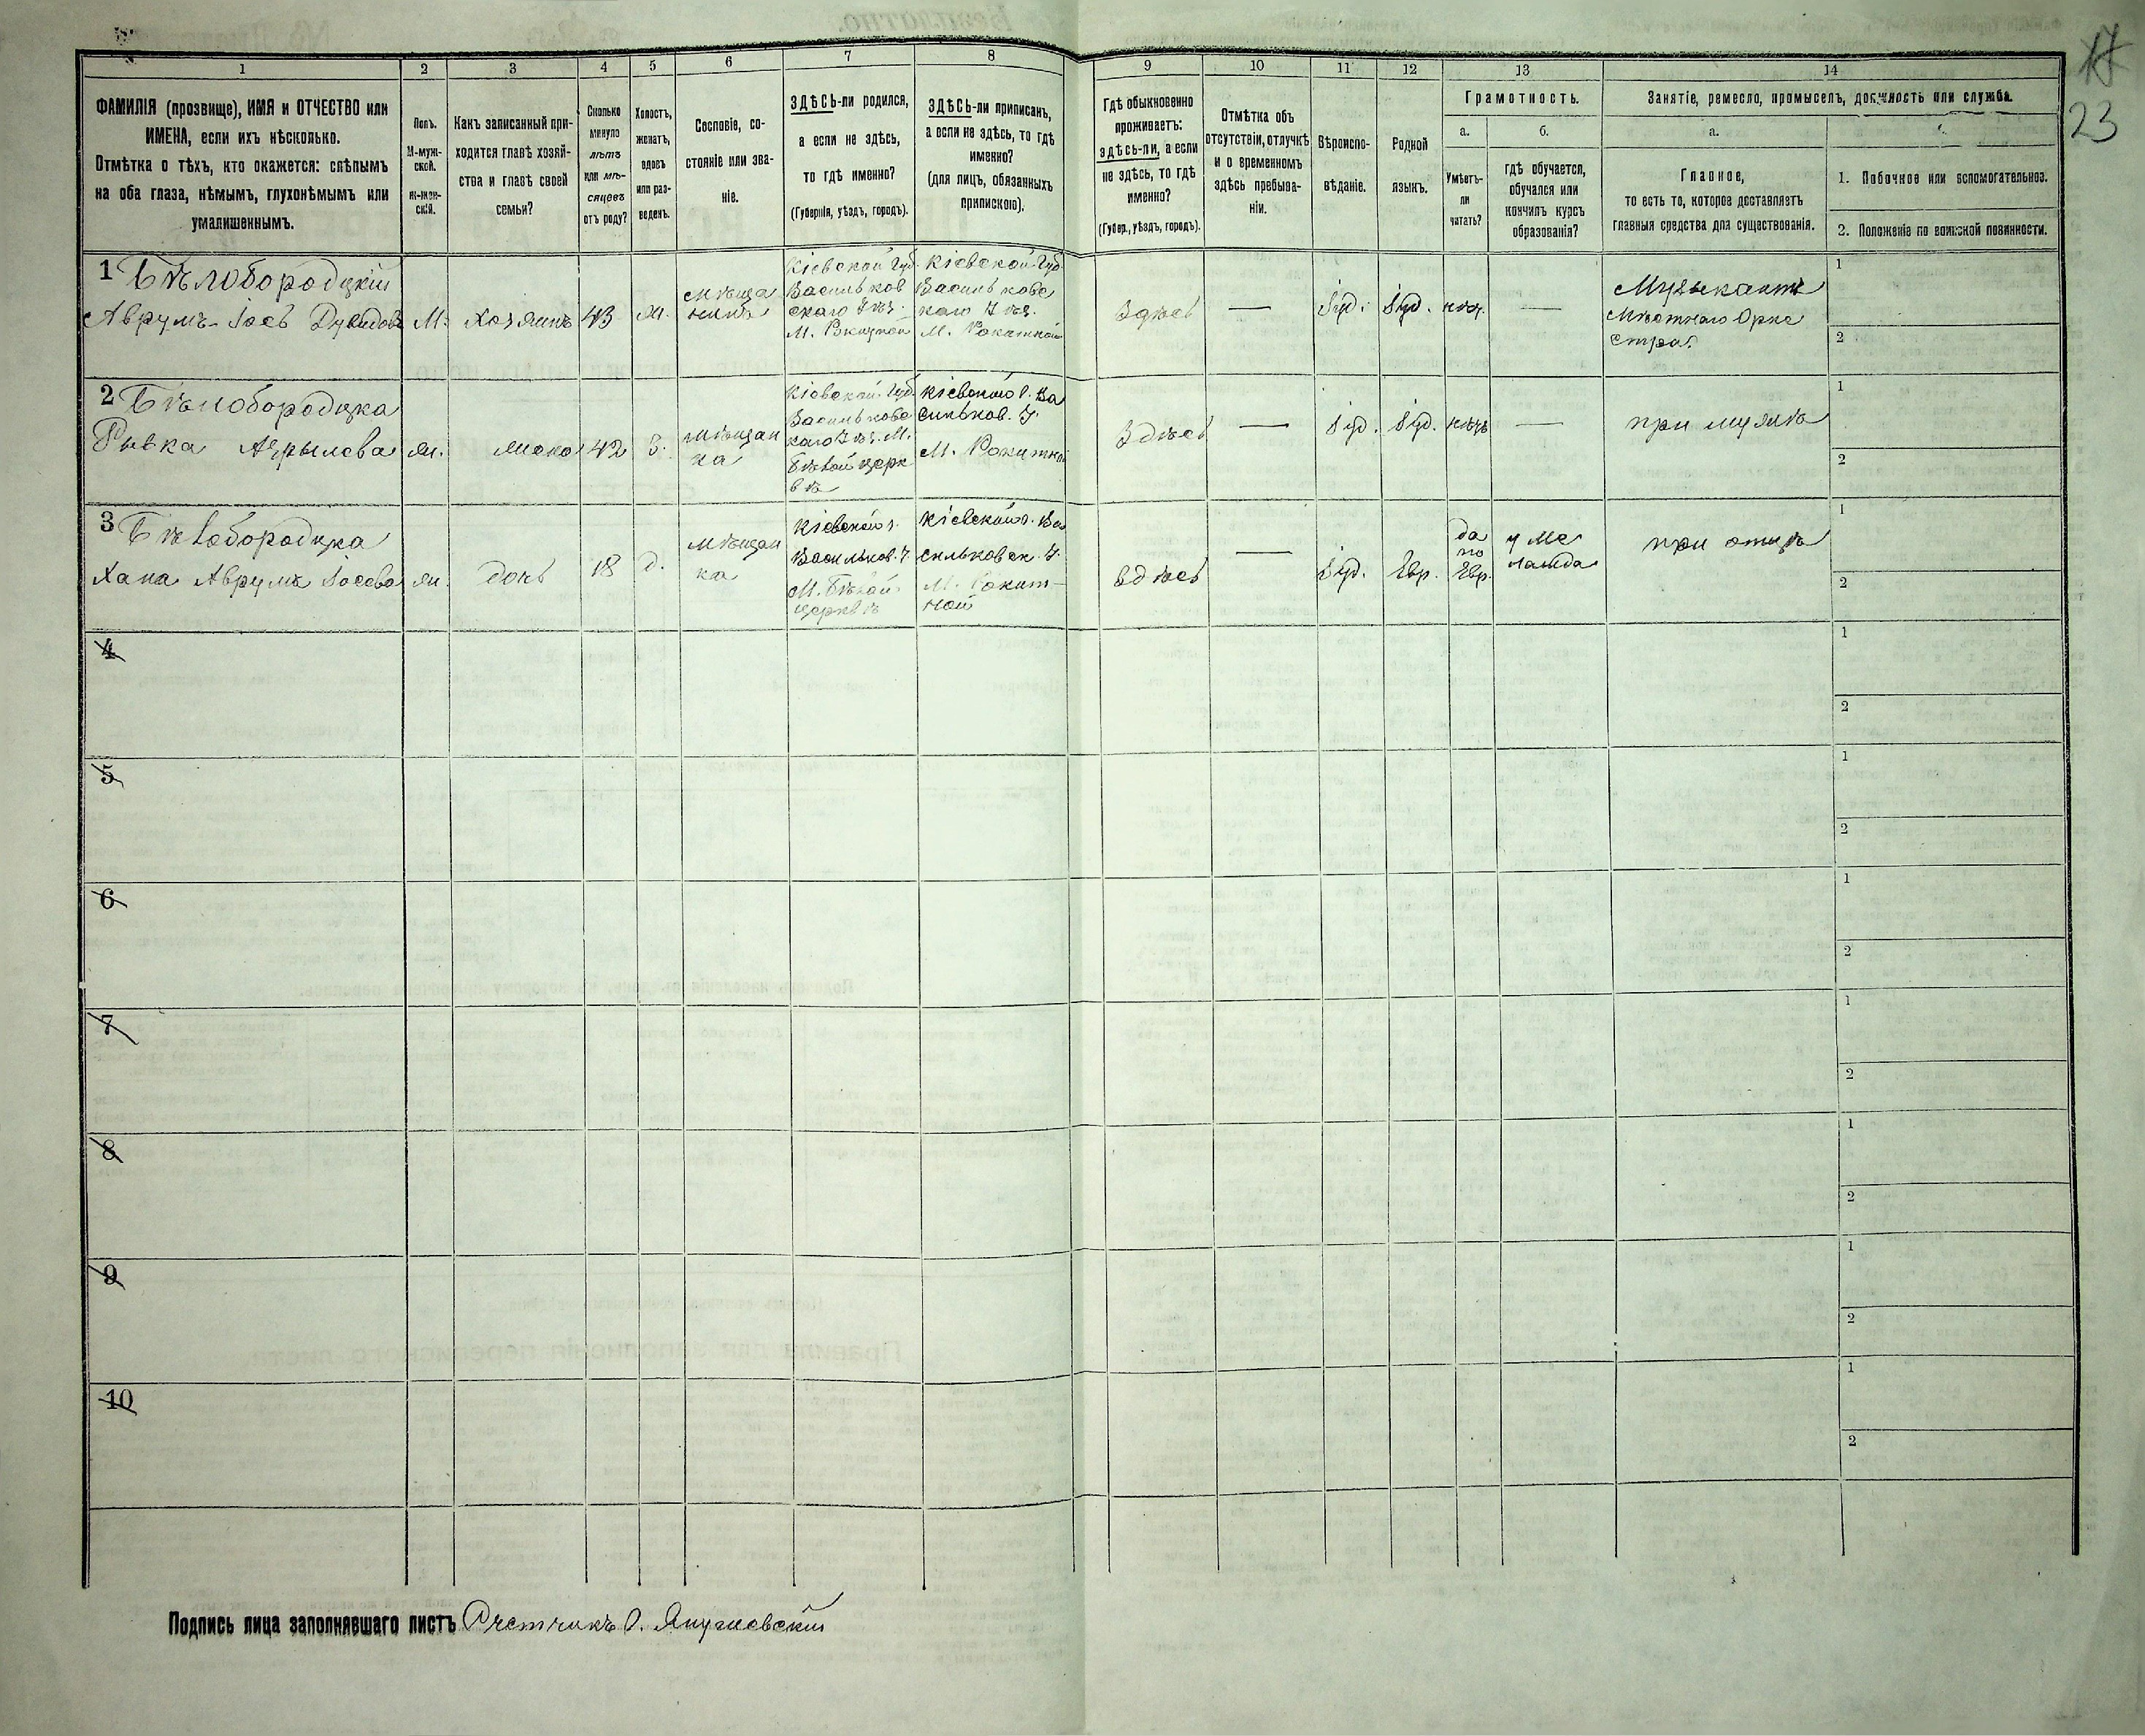 17
23
1
2
3
4
5
6
7
8
9
10
11
12
13
14
ФАМИЛІЯ (прозвище), ИМЯ и ОТЧЕСТВО или
ИМЕНА, если ихъ нѣсколько.
Отмѣтка о тѣхъ, кто окажется: слѣпымъ
на оба глаза, нѣмымъ, глухонѣмымъ или
умалишеннымъ.
Полъ.
М-муж-
ской.
ж-жен-
скій.
Какъ записанный при-
ходится главѣ хозяй-
ства и главѣ своей
семьи?
Сколько
минуло
лѣтъ
или мѣ-
сяцевъ
отъ роду?
Холостъ,
женатъ,
вдовъ
или раз-
веденъ.
Сословіе, со-
стояніе или зва-
ніе.
ЗДѢСЬ-ли родился,
а если не здѣсь,
то гдѣ именно?
(Губернія, уѣздъ, городъ).
ЗДѢСЬ-ли приписанъ,
а если не здѣсь, то гдѣ
именно?
(для лицъ, обязанныхъ
припискою).
Гдѣ обыкновенно
проживаетъ:
здѣсь-ли, а если
не здѣсь, то гдѣ
именно?
(Губер., уѣздъ, городъ).
Отмѣтка объ
отсутствіи, отлучкѣ
и о временномъ
здѣсь пребыва-
ніи.
Вѣроиспо-
вѣданіе.
Родной
языкъ.
Грамотность.
а.
б.
Умѣетъ-
ли
читать?
гдѣ обучается,
обучался или
кончилъ курсъ
образованія?
Занятіе, ремесло, промыселъ, должность или служба.
а.
Главное,
то есть то, которое доставляетъ
главныя средства для существованія.
1. Побочное или вспомогательное.
2. Положеніе по воинской повинности.
1 Бѣлобородцкій
Аврумъ-Іось Дувидовъ
М.
Хозяинъ
43
ж.
Мѣща
нинъ
Кіевской Губ.
Васильков
скаго Уѣз.
М.
Кіевской Губ.
Васильковс
каго Уѣз.
М. Рокитной
Здѣсь
—
Іуд.
Іуд.
—
Музыкантъ
Мѣстнаго Орке
стра.
1
2
2 Бѣлобородцка
Рывка
ж.
жена
42
З.
Мѣщан
ка
Кіевской Губ.
Васильковс
каго Уѣз. М.
Бѣлой церк
вѣ
Кіевской г. Ва
сильков. У.
М. Рокитной
Здѣсь
—
Іуд.
Іуд.
нѣтъ
—
при мужѣ
1
2
3 Бѣлобородцка
Хана Аврумъ Іосева
ж.
дочь
18
д.
Мѣщан
ка
Кіевской г.
Васильков. У.
М. Бѣлой
церквѣ
Кіевской г. Ва
сильковск. У.
М. Рокит-
ной
Здѣсь
—
Іуд.
Евр.
да
по
Евр.
у Ме
ламда
при отцѣ
1
2
4
1
2
5
1
2
6
1
2
7
1
2
8
1
2
9
1
2
10
1
2
Подпись лица заполнявшаго листъ Счетчикъ